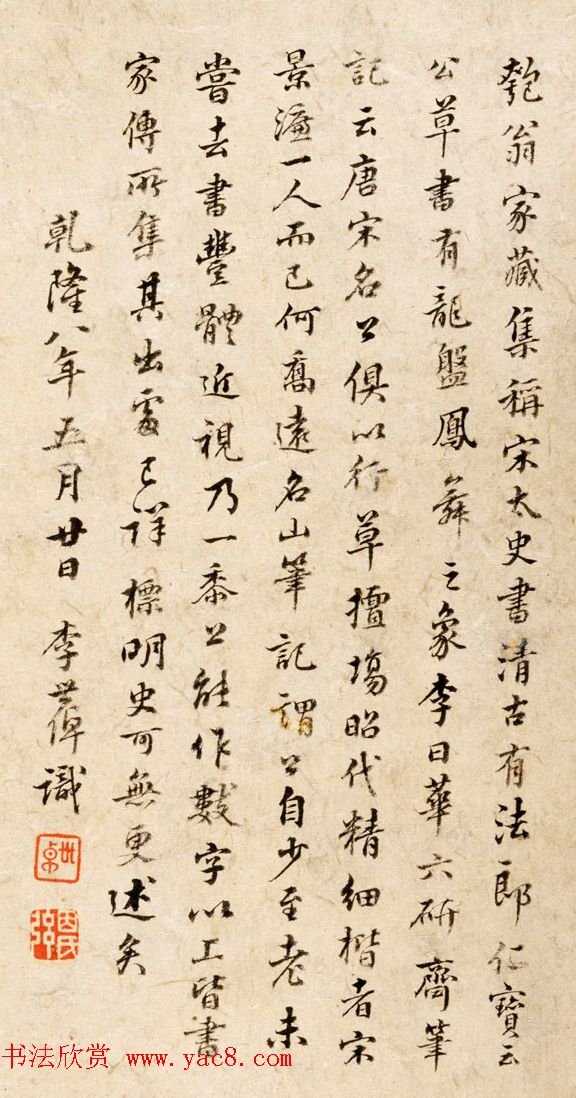 匏翁家藏集稱宋太史書清古有法郎仁寶云
公草書有龍盤鳳舞之象李日華六研齋筆
記云唐宋名公俱以行草擅場昭代精細楷者宋
景濂一人而已何喬遠名山筆記謂公自少至老未
嘗去書豐體近視乃一黍公能作數字以上皆書
家傳所集其出處已詳標明史可無更述矣
乾隆八年五月廿日 李世倬識
世倬
书法欣赏 www.yac8.com